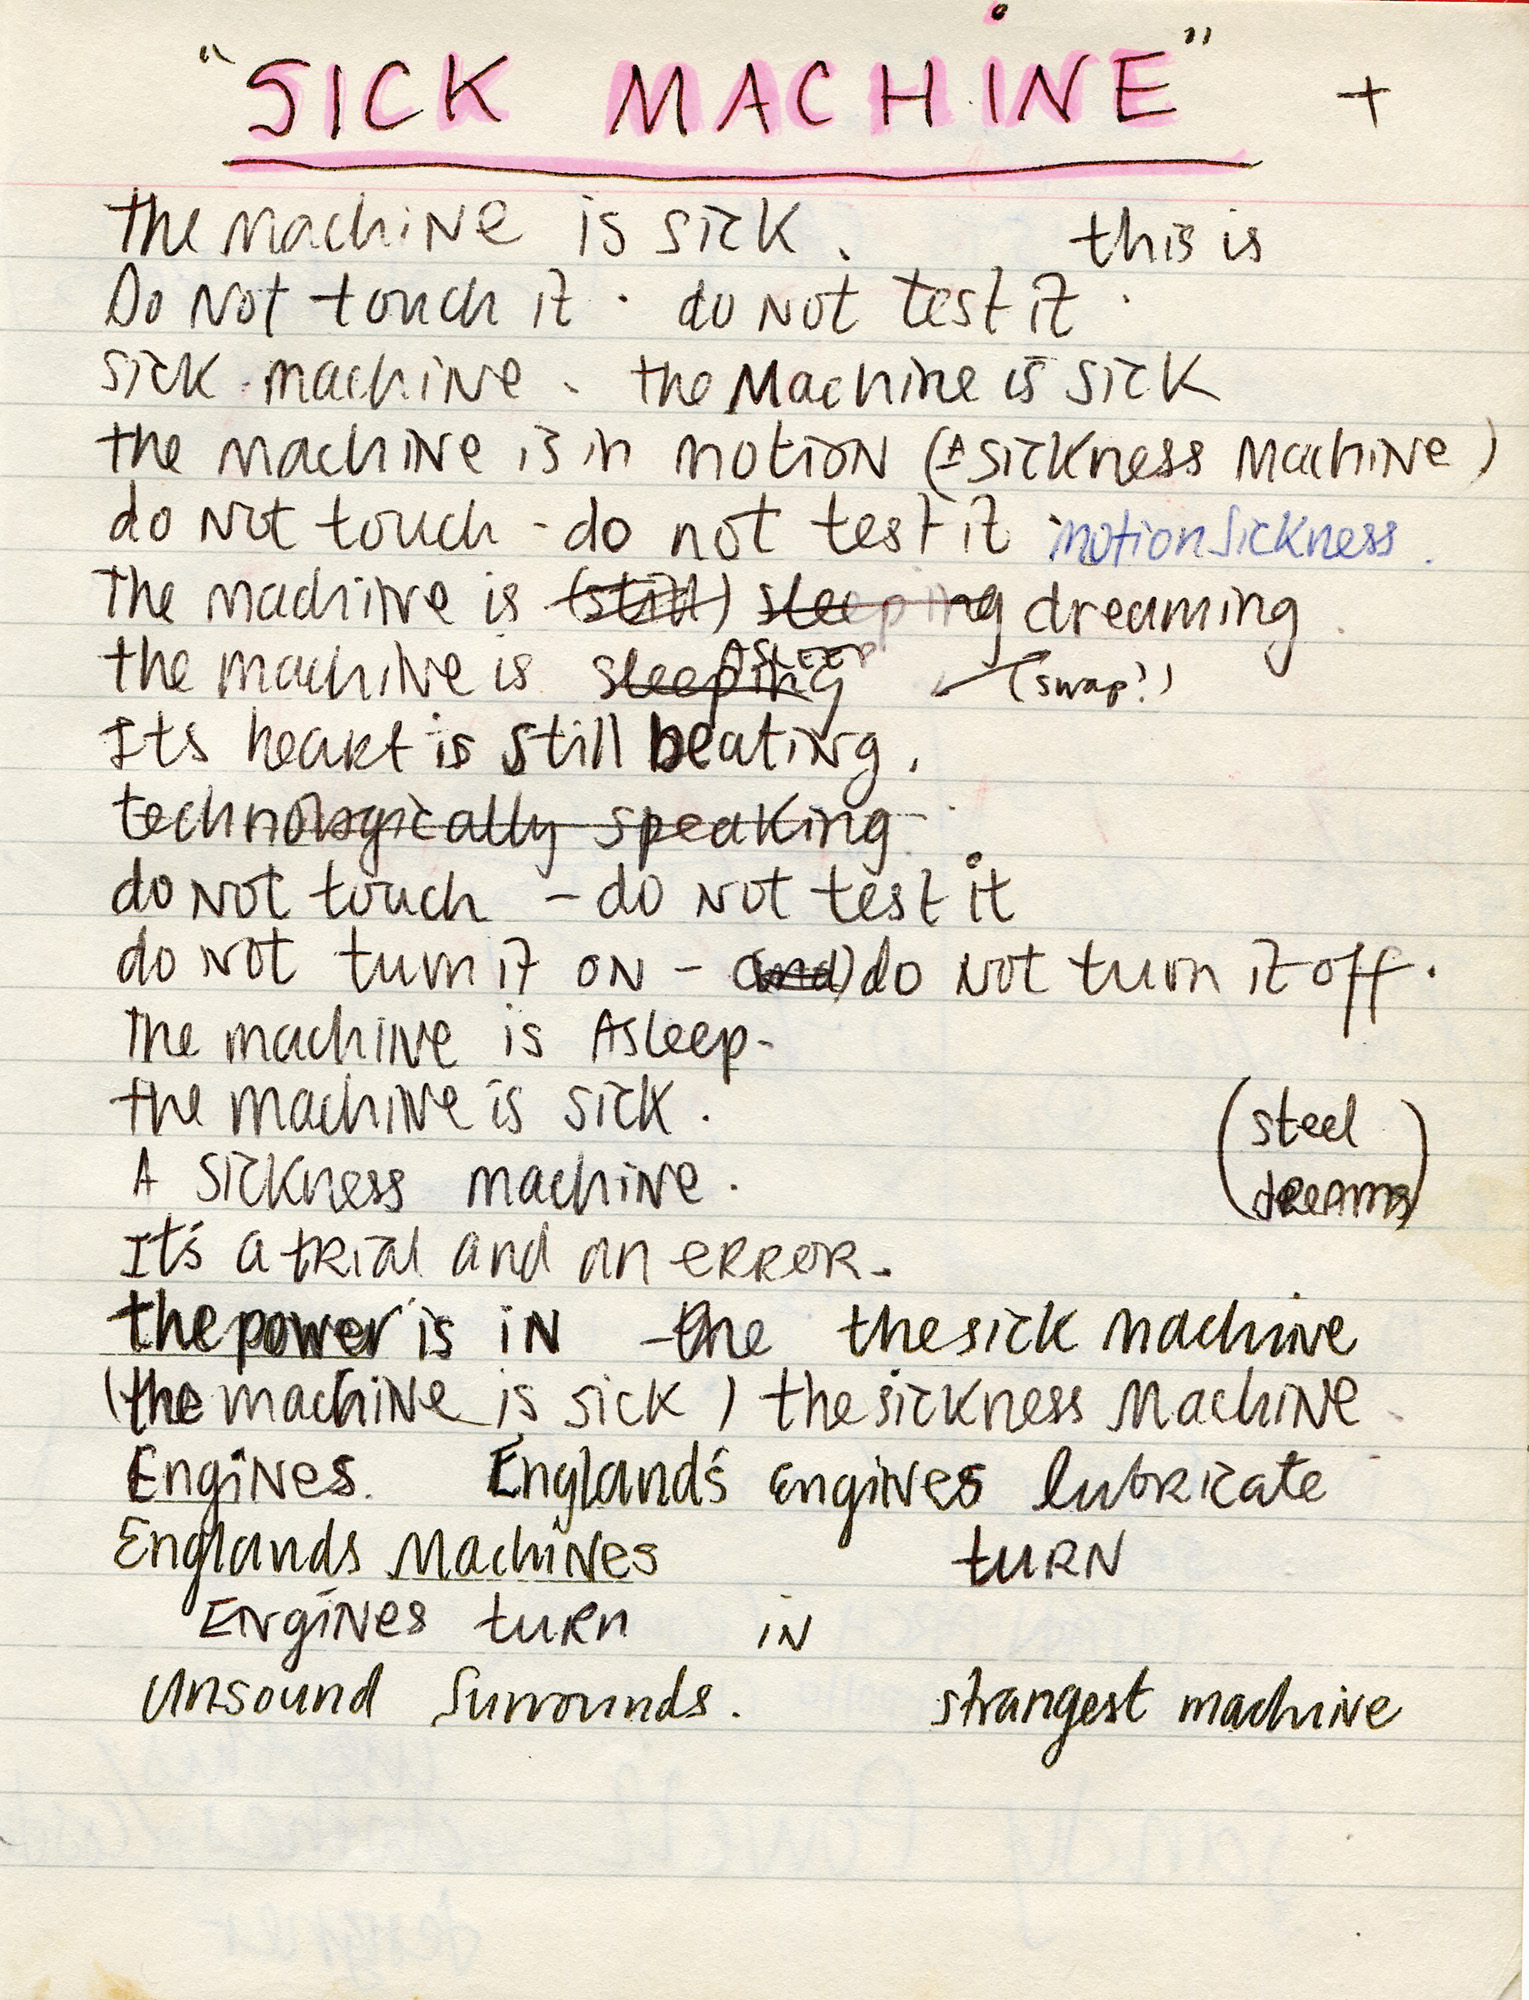 "SICK MACHiNE" +
the machiNe is sick. this is
Do Not touch it. do Not test it.
sick machiNe - the Machine is sick
the machiNe is in motioN (A sickness MachiNe)
do Not touch - do not test it motion Sickness.
The machine is (still) sleeping dreaming.
the machiNe is sleeping ASLEEP (swap?)
Its heart is still beatiNg.
technologically speaking
do Not touch - do Not test it
do Not turn it oN - (and) do Not turn it off.
The machiNe is Asleep-
the machiNe is sick.
A Sickness machiNe. (steel dreams)
It's a tRial and an eRRoR-
the power is iN the the sick machiNe
(the machiNe is sick) the sickness MachiNe
EngiNes. England's engiNes lubRicate
Englands MachiNes tuRN
EngiNes tuRn iN
Unsound Surrounds. strangest machiNe